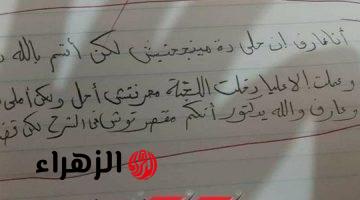 أنا عارف إن حلى دة ميتجحنيش لكن أنتم بالله
وعملت الا عليا دخلت اللجنة معرفتش أحل ولكن أملى
وعارف والله يدكتور أنكم مقصرتوش فى الشرح لكن
الزهراء